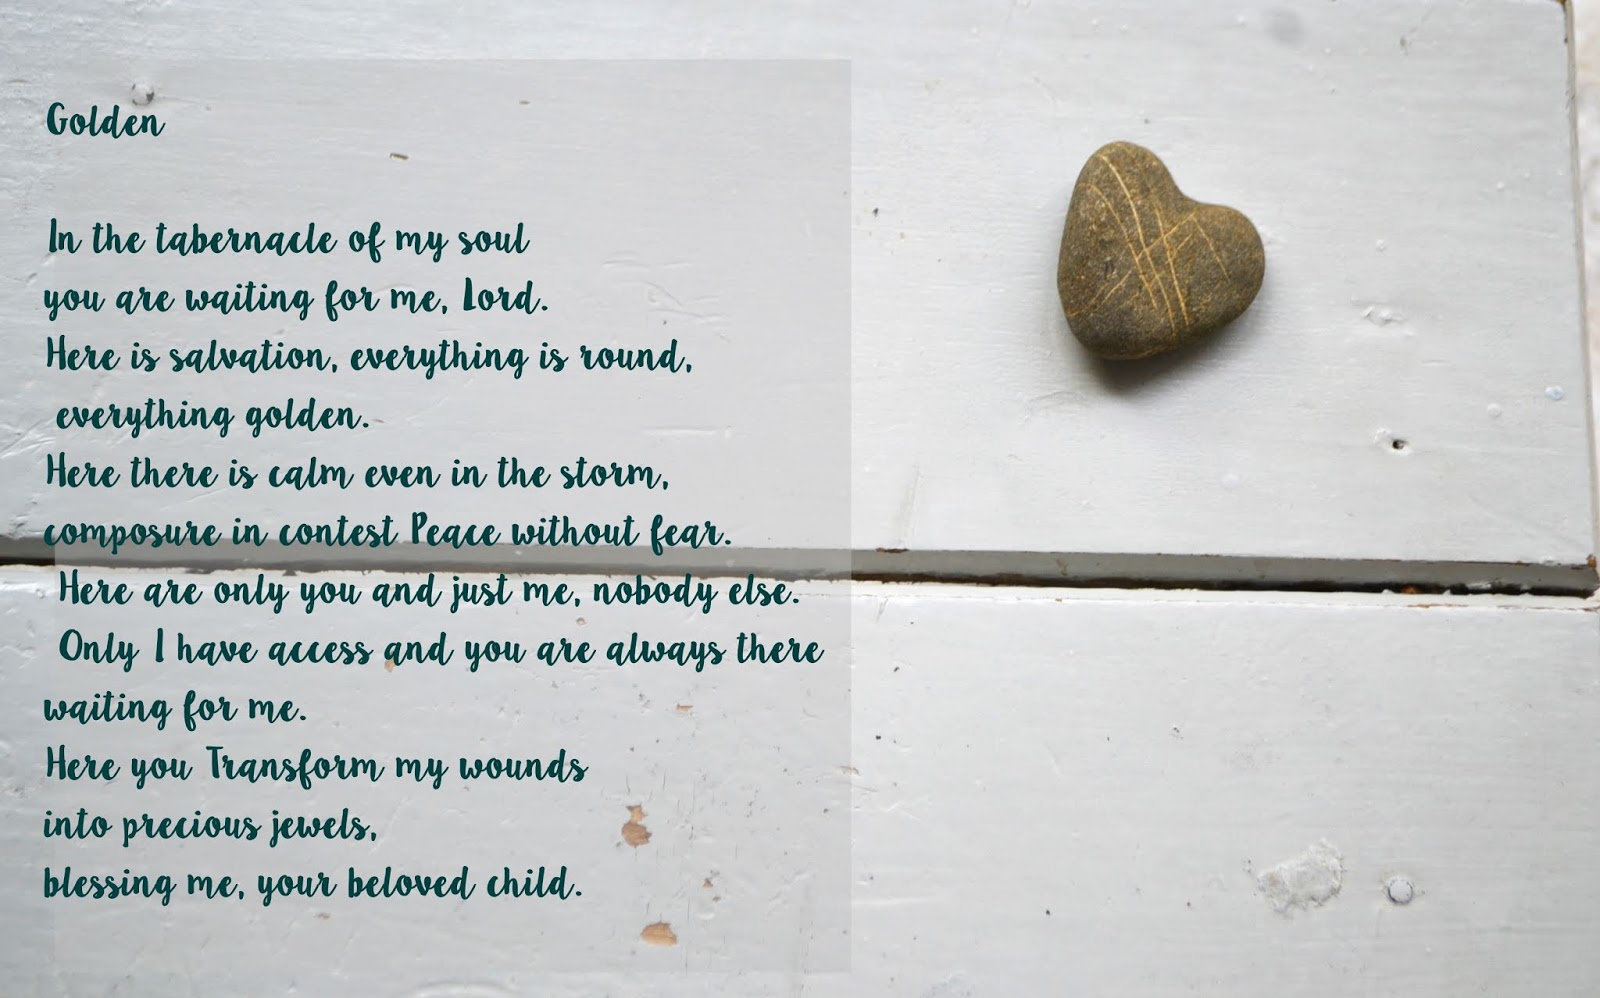 Golden
In the tabernacle of my soul
you are waiting for me, Lord.
Here is salvation, everything is round,
everything golden.
Here there is calm even in the storm,
composure in contest Peace without fear.
Here are only you and just me, nobody else.
Only I have access and you are always there
waiting for me.
Here you Transform my wounds
into precious jewels,
blessing me, your beloved child.